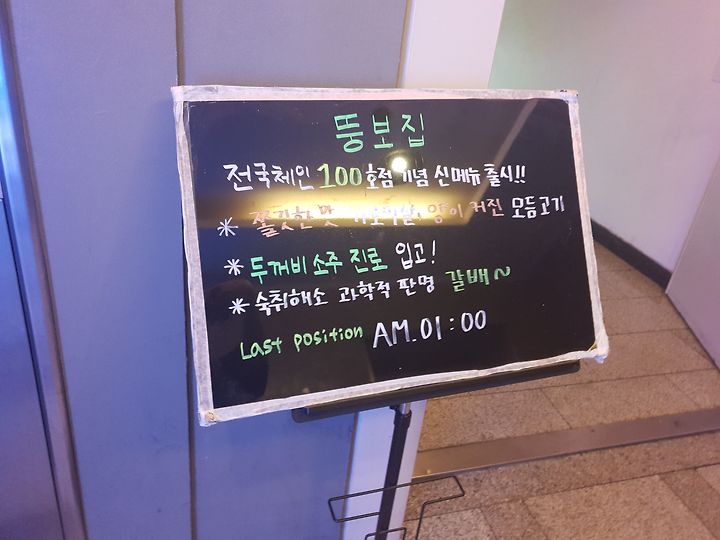 뚱보집
전국체인 100호점 기념 신메뉴 출시!!
* 쫄깃한 맛 양이 커진 모듬고기
* 두꺼비 소주 진로 입고!
* 숙취해소 과학적 판명 갈배~
Last position AM.01:00